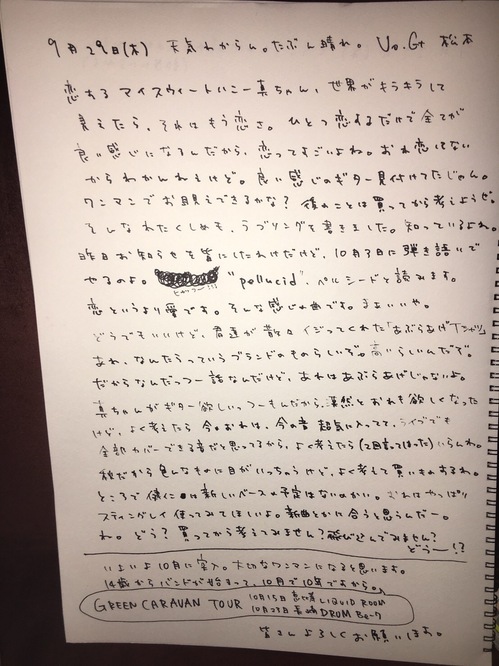 9月29日(木) 天気わからん。たぶん晴れ。 Vo.Gt 松本
恋するマイスウィートハニー真ちゃん、世界がキラキラして
見えたら、それはもう恋さ。ひとつ恋するだけで全てが
良い感じになるんだから、恋ってすごいよね。おれ恋してない
からわかんねぇけど。良い感じのギター見付けてたじゃん。
ワンマンでお目見えできるかな？後のことは買ってから考えようぜ。
そんなわたくしめも、ラブソングを書きました。知っているよね。
昨日お知らせを皆にしたわけだけど、10月3日に弾き語いで
やるのよ。 "pellucid"、ペルシードと読みます。
恋というより愛です。そんな感じの曲です。まぁいいや。
どうでもいいけど、君達が散々イジってくれた「あぶらあげTシャツ」
あれ、なんたらっていうブランドのものらしいぞ。高いらしいんだぞ。
だからなんだっつー話なんだけど、あれはあぶらあげじゃないよ。
真ちゃんがギター欲しいっつーもんだから、漠然とおれも欲しくなった
けど、よく考えたら今、おれは、今の音超気に入ってて、ライブでも
全部カバーできる音だと思ってるから、よく考えたら(2回言っちゃった)いらんわ。
秋だから色んなものに目がいっちゃうけど、よく考えて買いものするわ。
ところで健には新しいベースの予定はないのかい。おれはやっぱり
スティングレイ使ってみてほしいよ。新曲とかに合うと思うんだー。
ね。どう？買ってから考えてみません？飛び込んでみません？
どうー!?
いよいよ10月に突入。大切なワンマンになると思います。
14歳からバンドが始まって、10月で10年ですから。
GREEN CARAVAN TOUR 10月15日 恵比寿 LIQUID ROOM
10月23日 長崎 DRUM Be-7
皆さんよろしくお願いします。